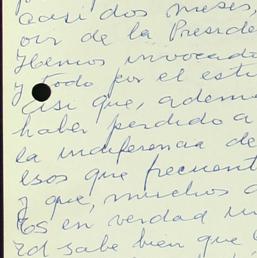 casi dos meses,
oir de la Preside
Hemos invocado
y todo por el esti
Asi que, ademe
haber perdido a
la indiferencia de
esos que frecuent
y que, muchos d
Es en verdad un
Ud sabe bien que